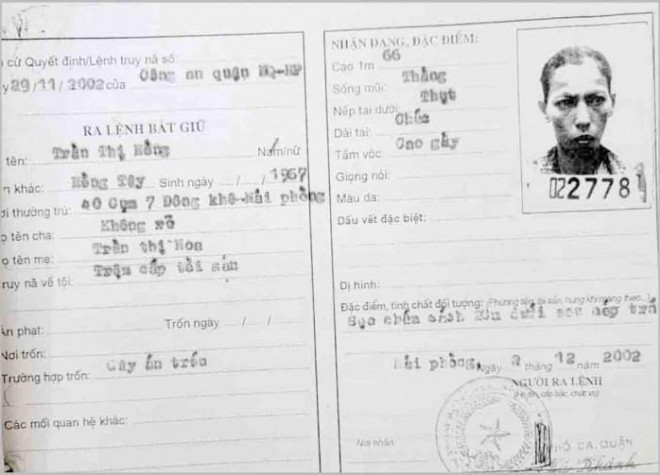 cứ Quyết định/Lệnh truy nã số:
29/11/2002 của Công an quận NQ-HP
RA LỆNH BẮT GIỮ
tên: Trần Thị Hồng Nam/nữ
khác: Hồng Tây Sinh ngày .../.../ 1967
thường trú: 40 Cụm 7 Đông khê-Hải phòng
tên cha: Không rõ
tên mẹ: Trần thị Hoa
truy nã về tội: Trộm cắp tài sản
Án phạt: Trốn ngày .../.../
Nơi trốn:
Trường hợp trốn: Gây án trốn
Các mối quan hệ khác:
NHẬN DẠNG, ĐẶC ĐIỂM:
Cao 1m 66
Sống mũi: Thẳng
Nếp tai dưới: Thụt
Dái tai: Chúc
Tầm vóc: Cao gầy
Giọng nói:
Màu da:
Dấu vết đặc biệt:
Dị hình:
Đặc điểm, tính chất đối tượng: (Phương tiện, tài sản, hung khí mang theo...)
Sẹo chấm cách dưới sau
Hải phòng, Ngày 2 tháng 12 năm 2002
NGƯỜI RA LỆNH
Nơi nhận
PHÓ CA. QUẬN
Khánh
022778